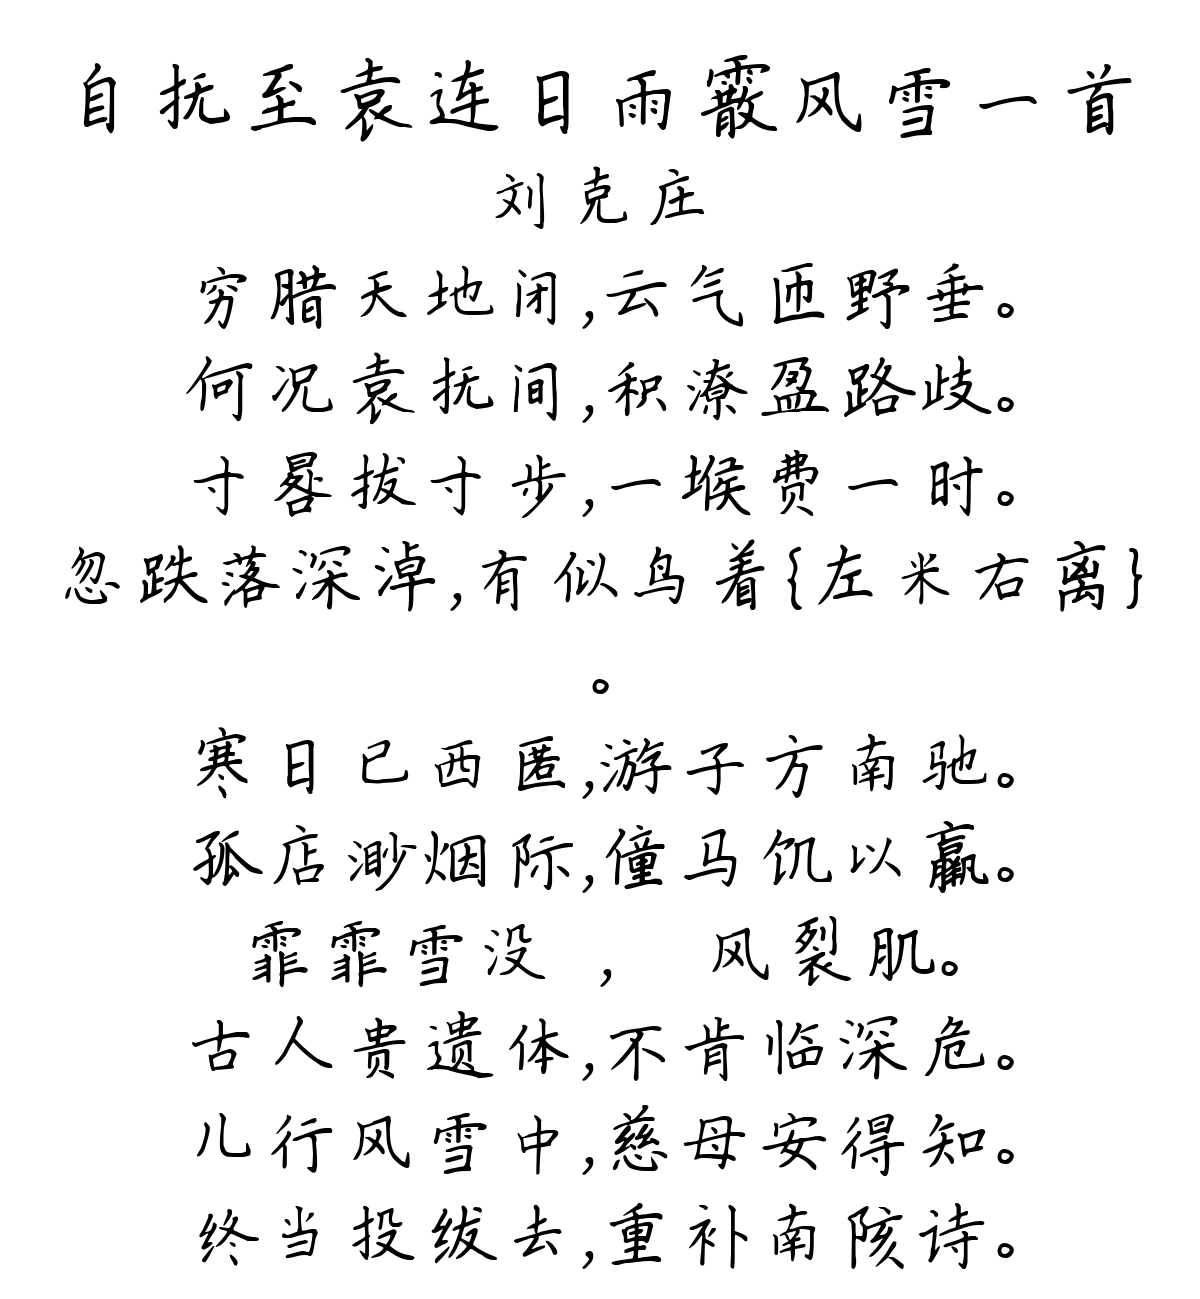 自抚至袁连日雨霰风雪一首
刘克庄
穷腊天地闭,云气匝野垂。
何况袁抚间,积潦盈路歧。
寸晷拔寸步,一堠费一时。
忽跌落深淖,有似鸟着{左米右离}
。
寒日已西匿,游子方南驰。
孤店渺烟际,僮马饥以羸。
霏霏雪没 , 风裂肌。
古人贵遗体,不肯临深危。
儿行风雪中,慈母安得知。
终当投绂去,重补南陔诗。